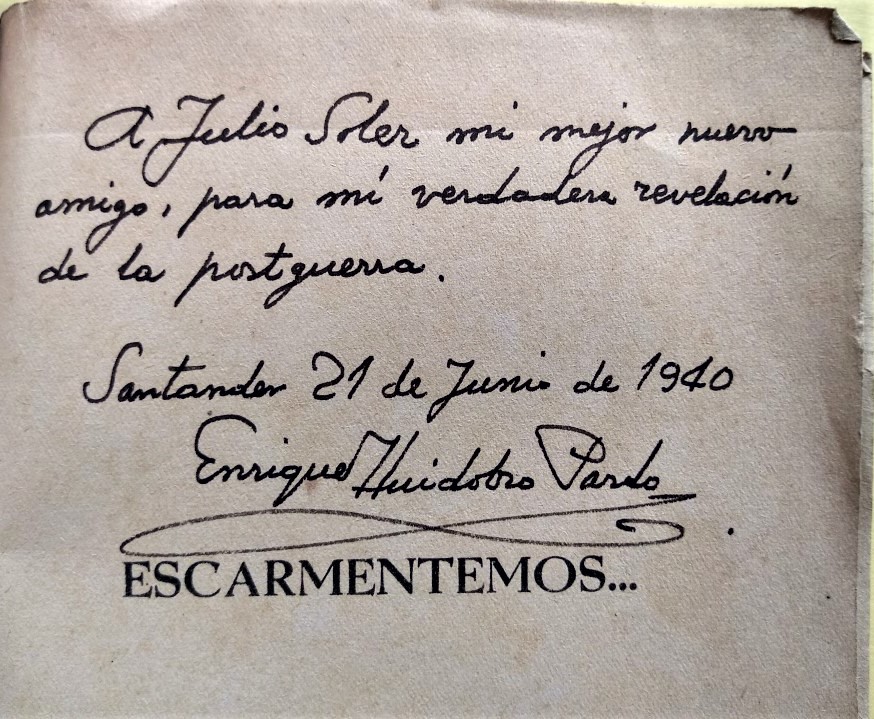 A Julio Soler mi mejor nuevo
amigo, para mí verdadera revelación
de la postguerra.
Santander 21 de Junio de 1940
Enrique Huidobro Pardo
ESCARMENTEMOS...